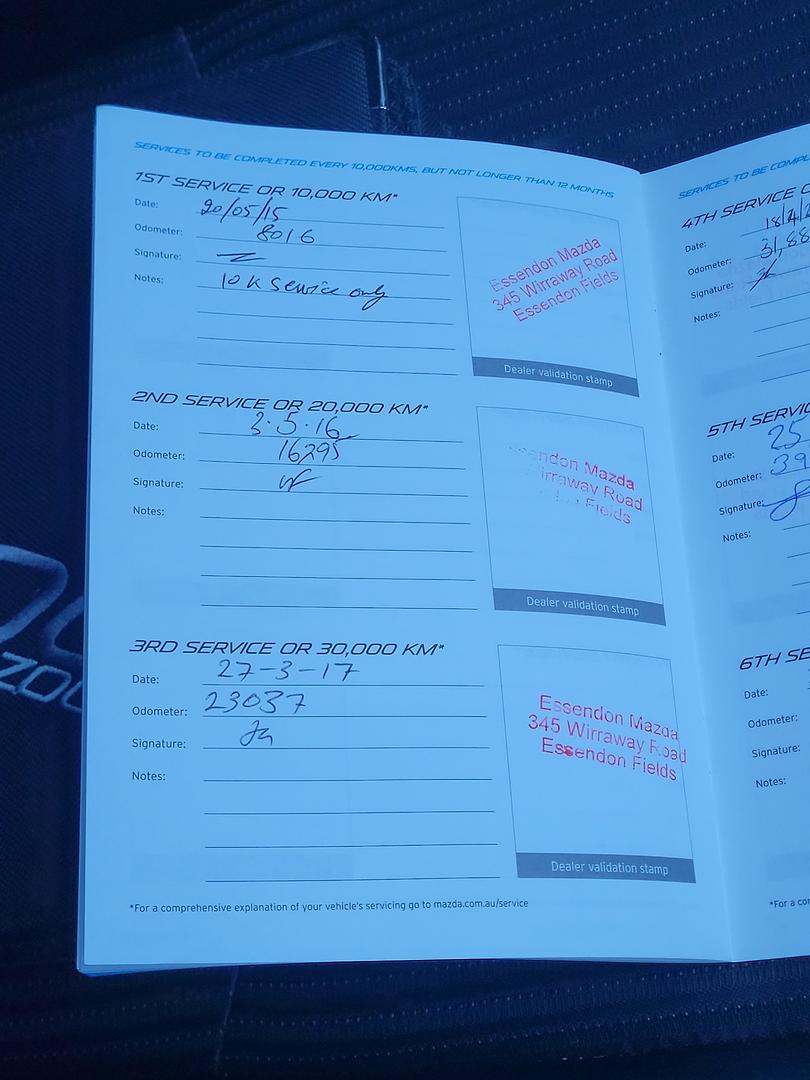 SERVICES TO BE COMPLETED EVERY 10,000KMS, BUT NOT LONGER THAN 12 MONTHS
1ST SERVICE OR 10,000 KM*
Date: 20/05/15
Odometer: 8016
Signature:
Notes: 10K Service only
Essendon Mazda
345 Wirraway Road
Essendon Fields
Dealer validation stamp
2ND SERVICE OR 20,000 KM*
Date: 3.5.16
Odometer: 16295
Signature:
Notes:
Mazda
Road
Fields
Dealer validation stamp
3RD SERVICE OR 30,000 KM*
Date: 27-3-17
Odometer: 23037
Signature:
Notes:
Essendon Mazda
345 Wirraway Road
Essendon Fields
Dealer validation stamp
*For a comprehensive explanation of your vehicle's servicing go to mazda.com.au/service
SERVICES TO BE
4TH SERVICE
Date:
Odometer:
Signature:
Notes:
5TH
Date: 25
Odometer:
Signature:
Notes:
6TH
Date:
Odometer:
Signature:
Notes:
*For a